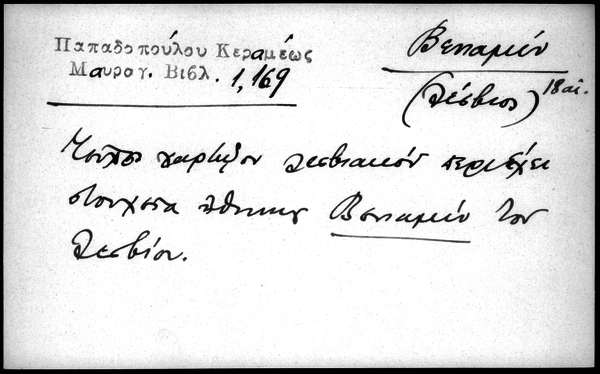 Παπαδοπούλου Κεραμέως
Μαυρογ. Βιβλ. 1,169
Βενιαμίν
(Λέσβιος) 18 αἰ.
χαρτῷον λεσβιακὸν περιέχει
στοιχεῖα Βενιαμίν τοῦ
Λεσβίου.